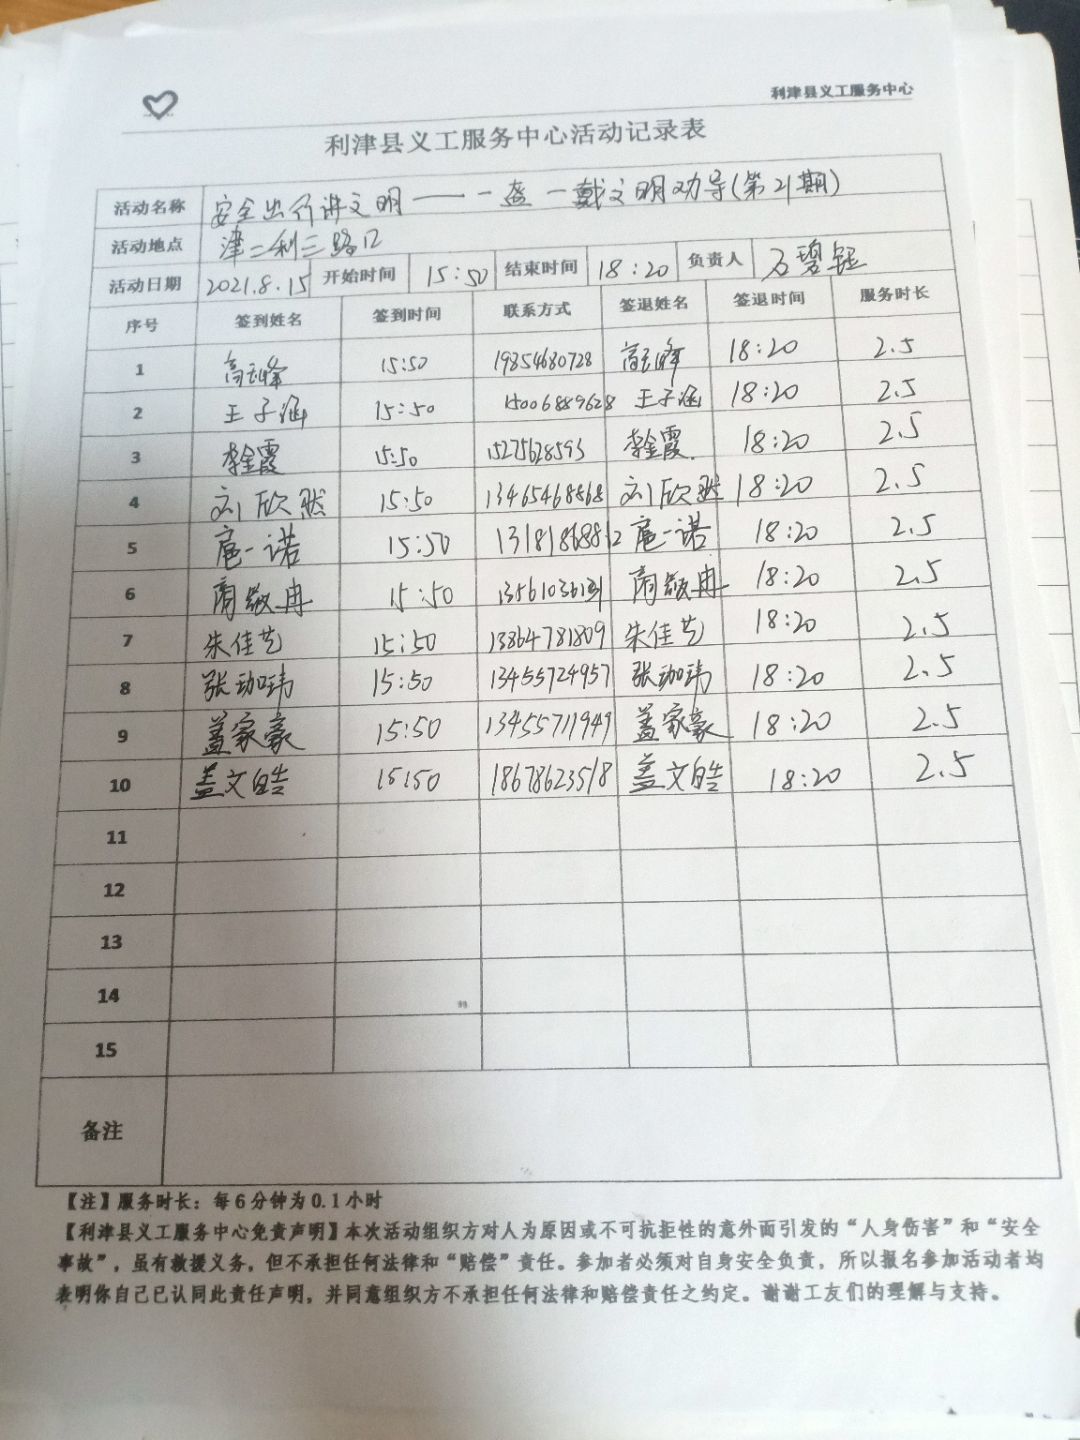 利津县义工服务中心
利津县义工服务中心活动记录表
活动名称 安全出行讲文明——一盔一戴文明劝导(第21期)
活动地点 津二利三路口
活动日期 2021.8.15 开始时间 15:50 结束时间 18:20 负责人
序号 签到姓名 签到时间 联系方式 签退姓名 签退时间 服务时长
1 15:50 19854680728 18:20 2.5
2 王子涵 15:50 15006889628 王子涵 18:20 2.5
3 李金霞 15:50 15275628593 李金霞 18:20 2.5
4 刘欣然 15:50 13465468868 刘欣然 18:20 2.5
5 扈一诺 15:50 13181868812 扈一诺 18:20 2.5
6 15:50 18:20 2.5
7 朱佳艺 15:50 13864781809 朱佳艺 18:20 2.5
8 张珈玮 15:50 13455724957 张珈玮 18:20 2.5
9 盖家豪 15:50 13455711949 盖家豪 18:20 2.5
10 盖文皓 15:50 18678623518 盖文皓 18:20 2.5
11
12
13
14
15
备注
【注】服务时长：每6分钟为0.1小时
【利津县义工服务中心免责声明】本次活动组织方对人为原因或不可抗拒性的意外而引发的“人身伤害”和“安全
事故”，虽有救援义务，但不承担任何法律和“赔偿”责任。参加者必须对自身安全负责，所以报名参加活动者均
表明你自己已认同此责任声明，并同意组织方不承担任何法律和赔偿责任之约定。谢谢工友们的理解与支持。